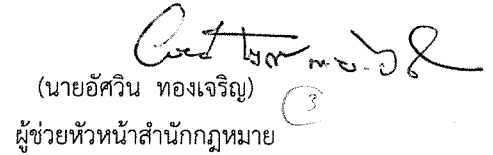 (นายอัศวิน ทองเจริญ)
3
ผู้ช่วยหัวหน้าสำนักกฎหมาย